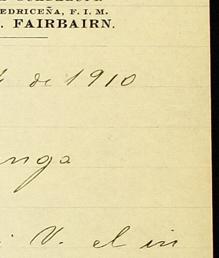 EDRICEÑA, F. I. M.
. FAIRBAIRN.
de 1910
nga
V. el in